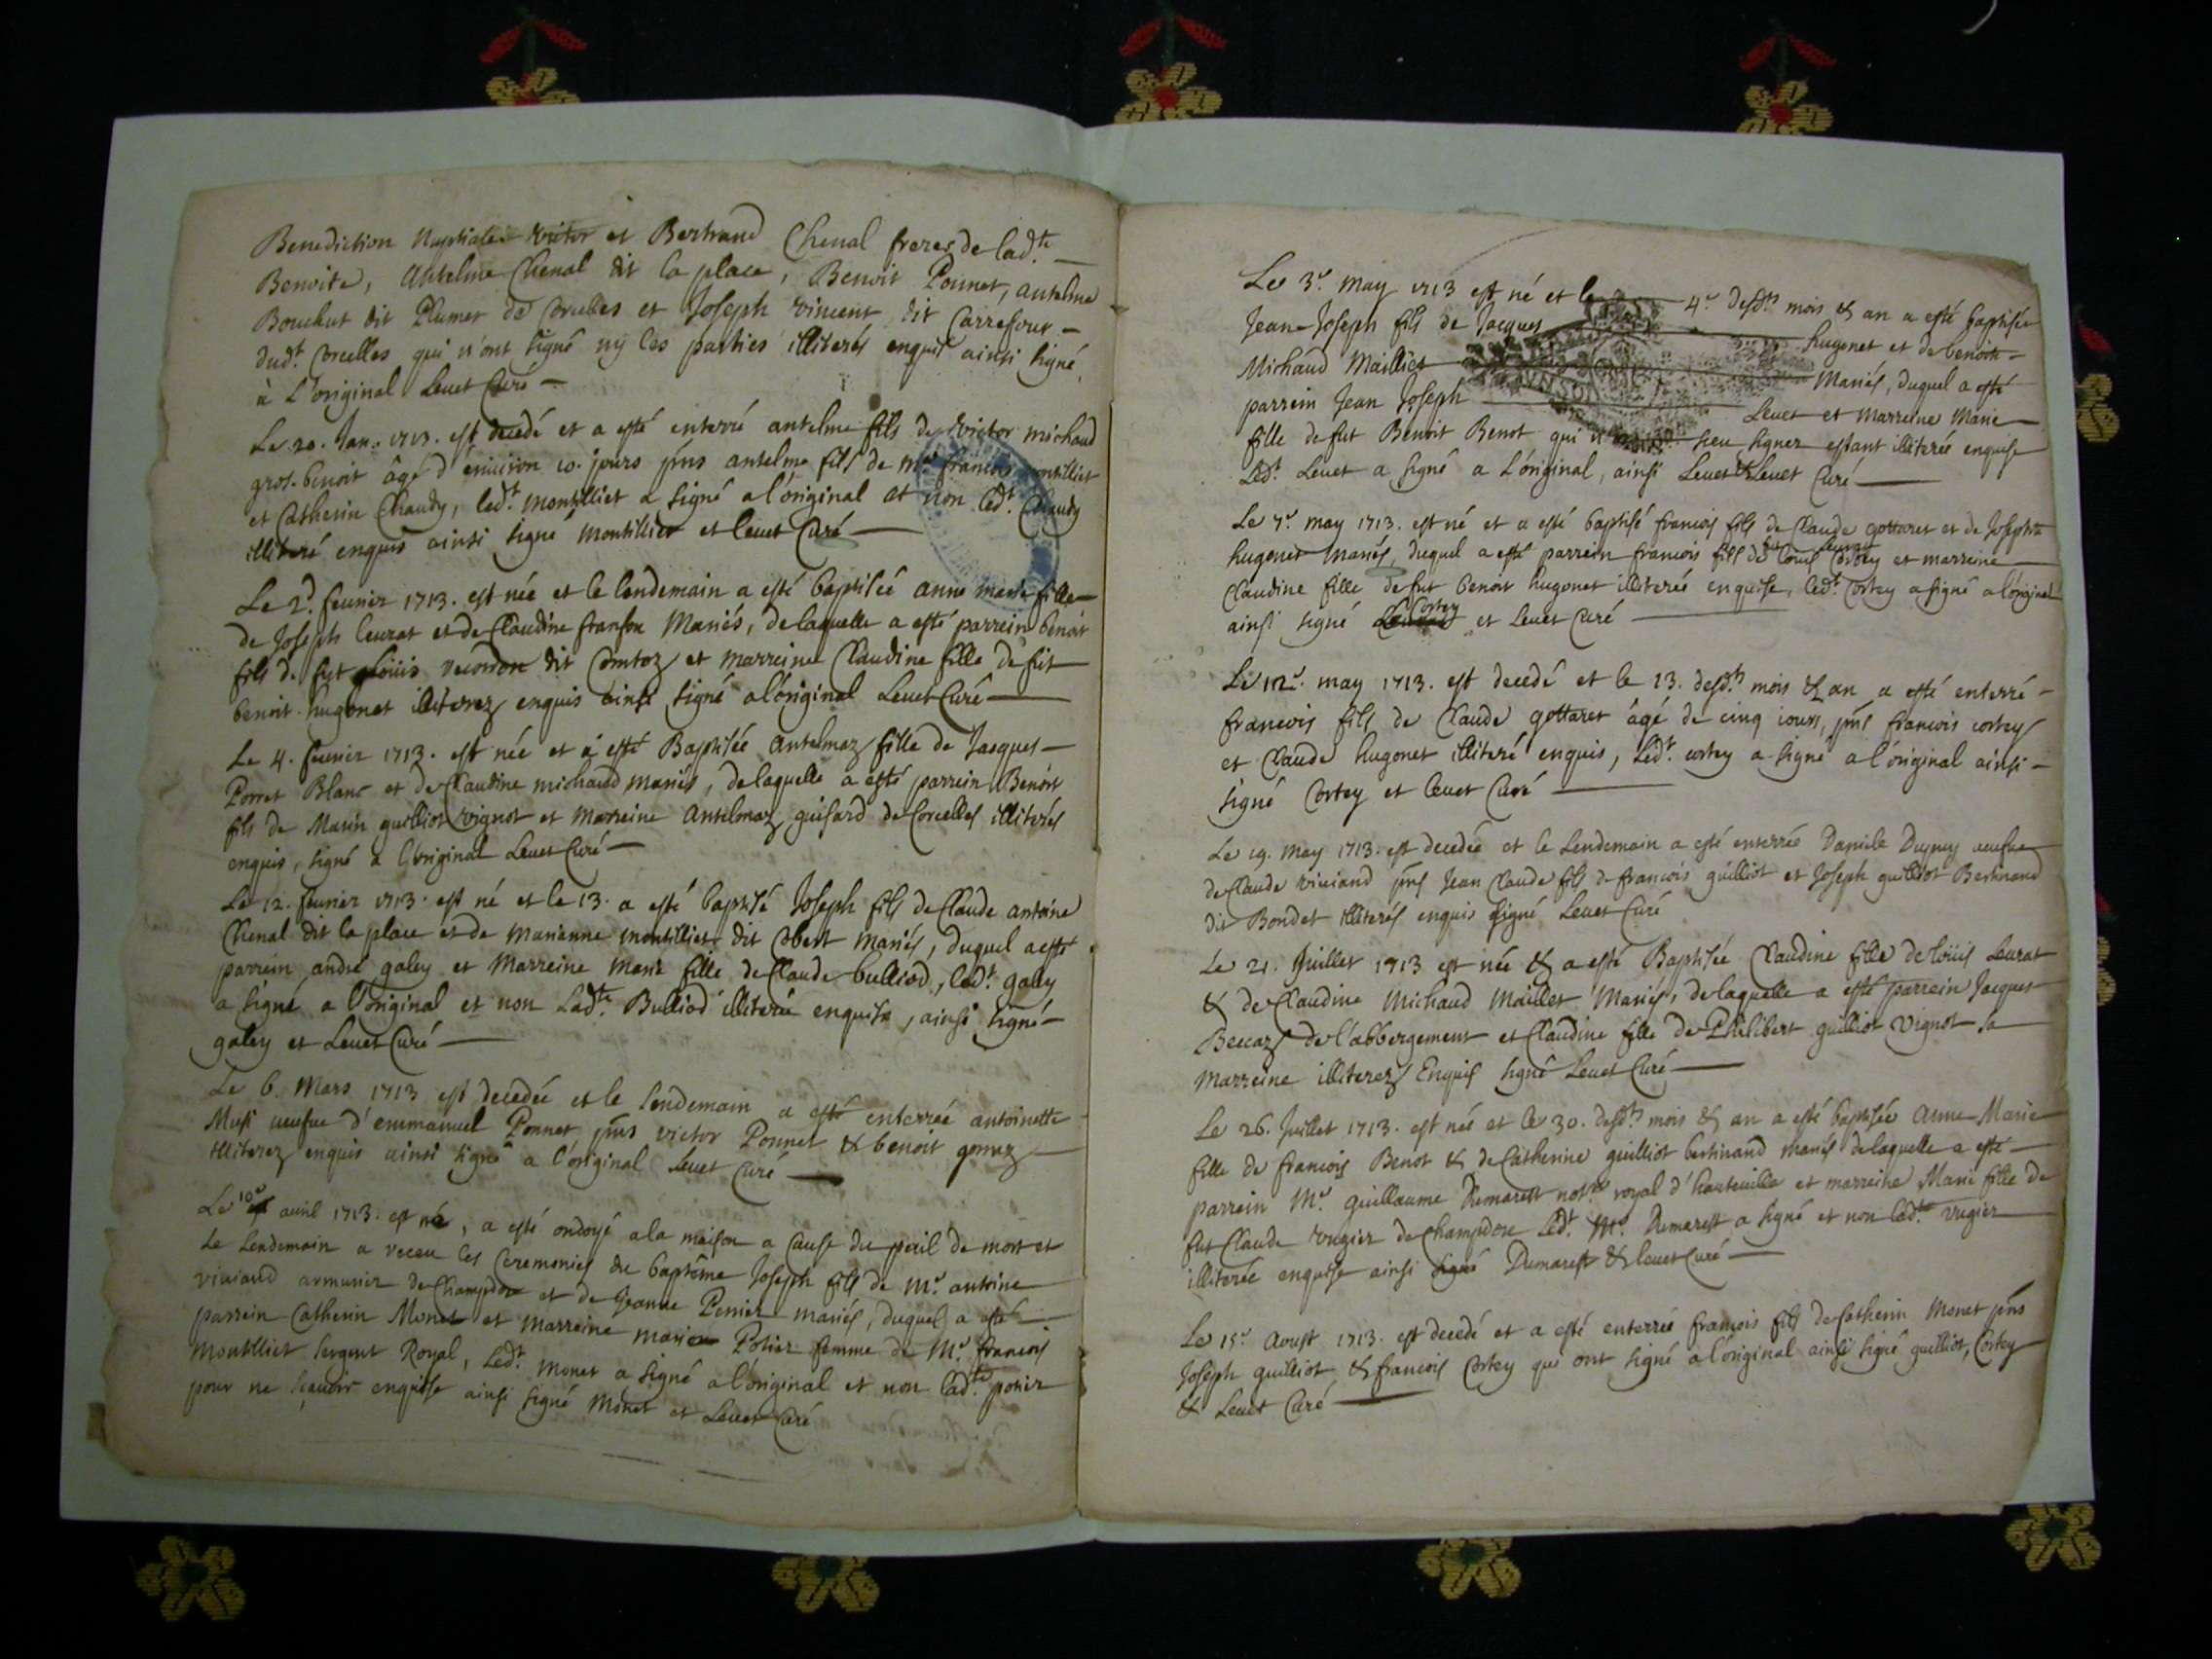 Benediction Nuptiale Victor et Bertrand Chenal freres de lad.te
Benoite, Antelme Chenal dit la place, Benoit Ponnet, antelme
Bouchut dit Plumet de Corcelles et Joseph vincent dit Carrefour
dud.t Corcelles qui n'ont signé ny les parties illiterés enquis ainsi signé
à L'original Levet Curé
Le 20. Jan. 1713. est decedé et a esté enterré antelme fils de Victor michaud
gros-benoit âgé d'environ 10. jours pñs antelme fils de me francois montilliet
et Catherin Chaudy, led.t montilliet a signé a l'original et non led.t Chaudy
illiteré enquis ainsi signé montilliet et levet Curé
Le 2d. fevrier 1713. est née et le lendemain a esté baptisée anne marie fille
de Joseph leurat et de Claudine franson Mariés, de laquelle a esté parrein benoit
fils de fut Loüis dit Comtoz et marreine Claudine fille de fut
benoit hugonet illiterez enquis ainsi signé a l'original Levet Curé
Le 4. fevrier 1713. est née et a esté Baptisée Antelmaz fille de Jacques
Porret Blanc et de Claudine michaud mariés, de laquelle a esté parrein Benoit
fils de Marin guilliot vignot et Marreine Antelmaz guisard de Corcelles illiterés
enquis, signé a l'original Levet Curé
Le 12. fevrier 1713. est né et le 13. a esté baptisé Joseph fils de Claude antoine
Chenal dit la place et de Marianne montilliet dit Obert mariés, duquel a esté
parrein andré galey et Marreine Marie fille de Claude bulliod, led.t galey
a signé a l'original et non Lad.te Bulliod illiterée enquise, ainsi signé
galey et Levet Curé
Le 6. Mars 1713 est decedée et le lendemain a esté enterrée antoinette
Musi veufve d'emmanuel Ponnet pñs victor Ponnet & benoit gonraz
illiterez enquis ainsi signé a l'original Levet Curé
Le 10e avril 1713. est né, a esté ondoyé a la maison a Cause du peril de mort et
Le Lendemain a receu les Ceremonies du baptême Joseph fils de Me. antoine
viviand armurier de Champdor et de Jeanne Perrier mariés, duquel a esté
parrein Catherin Monet et Marreine marie Potier femme de Me. francois
Montilliet sergent Royal, Led.t monet a signé a l'original et non lad.te potier
pour ne sçavoir enquise ainsi signé Monet et Levet Curé
Le 3e. may 1713 est né et le 4e desd.ts mois & an a esté baptisée
Jean-Joseph fils de Jacques hugonet et de benoite
Michaud Mailliet Mariés, duquel a esté
parrein Jean Joseph Levet et Marreine Marie
fille de fut Benoit Benot qui n'a sceu signer estant illiterée enquise
Led.t Levet a signé a L'original, ainsi Levet & Levet Curé
Le 7e. may 1713. est né et a esté baptisé francois fils de Claude gottaret et de Josephte
hugonet mariés, duquel a esté parrein francois fils de Louis Cortey et marreine
Claudine fille de fut benoit hugonet illiterée enquise, led.t Cortey a signé a l'original
ainsi signé Cortey et Levet Curé
Le 12e. may 1713. est decedé et le 13. desd.ts mois & an a esté enterré
francois fils de Claude gottaret âgé de cinq iours, pñs francois cortey
et Claude hugonet illiteré enquis, Led.t cortey a signé a l'original ainsi
signé Cortey et Levet Curé
Le 19. may 1713. est decedée et le Lendemain a esté enterrée Daniele Dupuy veufve
de Claude viviand pñs Jean Claude fils de francois guilliot et Joseph guilliot Bertinand
dit Bondet illiterés enquis signé Levet Curé
Le 21. Juillet 1713 est née & a esté Baptisée Claudine fille de loüis Leurat
& de Claudine Michaud Maillet Mariés, de laquelle a esté parrein Jacques
Beccaz de l'abbergement et Claudine fille de Philibert guilliot vignot sa
Marreine illiterez Enquis signé Levet Curé
Le 26. Juillet 1713. est née et le 30. desd.ts mois & an a esté baptisée Anne-Marie
fille de francois Benot & de Catherine guilliot bertinand mariés de laquelle a esté
parrein Me. guillaume Dumarest not.re royal d'hauteville et marreine Marie fille de
fut Claude vugier de Champdor Led.t Me. Dumarest a signé et non lad.te vugier
illiterée enquise ainsi signé Dumarest & levet Curé
Le 15e. Aoust 1713. est decedé et a esté enterrée francois fils de Catherin Monet pñs
Joseph guilliot & francois Cortey qui ont signé a l'original ainsi signé guilliot, Cortey
& Levet Curé